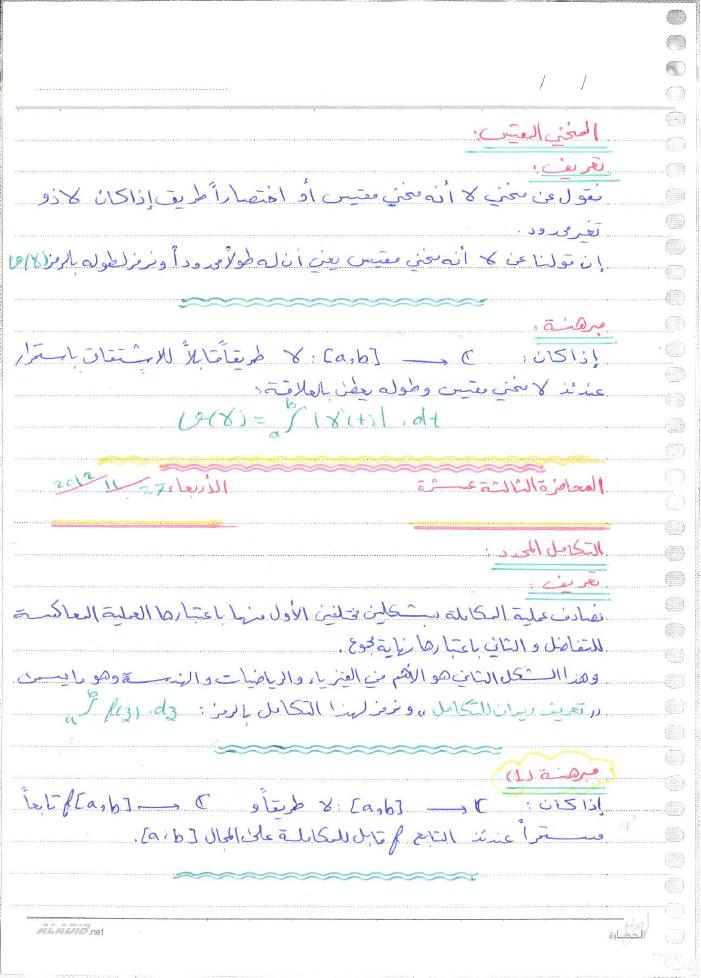 / /
المنحني المقيس:
تعريف:
نقول عن منحني γ أنه منحني مقيس أو اختصاراً طريق إذا كان γ ذو
تغير محدود.
إن قولنا عن γ أنه منحني مقيس يعني أن له طولاً محدوداً ونرمز لطوله بالرمز υ(γ)
مبرهنة:
إذا كان: γ: [a,b] → ℂ طريقاً قابلاً للاشتقاق باستمرار
عندئذ γ منحني مقيس وطوله يعطى بالعلاقة:
υ(γ) = ₐ∫ᵇ |γ'(t)| . dt
المحاضرة الثالثة عشرة الأربعاء 27/11/2012
التكامل المحدد:
تعريف:
نصادف عملية المكاملة بشكلين مختلفين الأول منها باعتبارها العملية المعاكسة
للتفاضل والثاني باعتبارها نهاية مجموع.
وهذا الشكل الثاني هو الأهم في الفيزياء والرياضيات والهندسة وهو ما يسمى
,, تعريف ريمان للتكامل ,, ونرمز لهذا التكامل بالرمز: ₐ∫ᵇ f(z) . dz
مبرهنة (1)
إذا كان: γ: [a,b] → ℂ طريقاً و f: [a,b] → ℂ تابعاً
مستمراً عندئذ التابع f قابل للمكاملة على المجال [a,b].
ALADIB.net
الحضارة